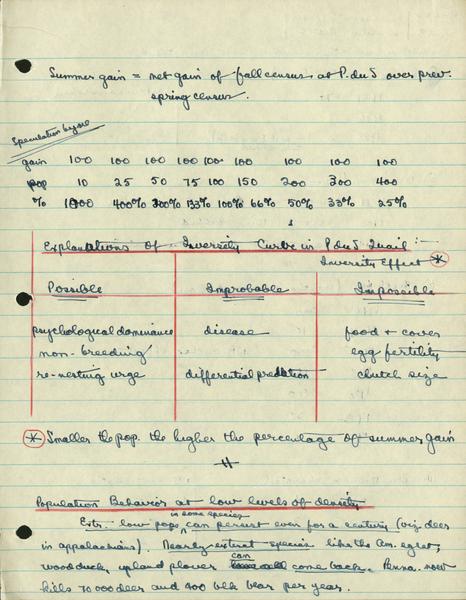 Summer gain = net gain of fall census at P. du S over prev.
spring census.
Speculation by Joe
gain 100 100 100 100 100 100 100 100 100
pop 10 25 50 75 100 150 200 300 400
% 1000 400% 200% 133% 100% 66% 50% 33% 25%
Explanations of Inversity Curve in P du S Quail :-
Inversity Effect *
Possible Improbable Impossible
psychological dominance disease food + cover
non-breeding egg fertility
re-nesting urge differential predation clutch size
* Smaller the pop. the higher the percentage of summer gain
Population Behavior at low levels of density
in some species
Exts. low pops can persist even for a century (viz deer
in appalachians). Nearly-extinct species like the Am. egret,
can
wood duck, upland plover come back. Penna. now
kills 70 000 deer and 400 blk bear per year.